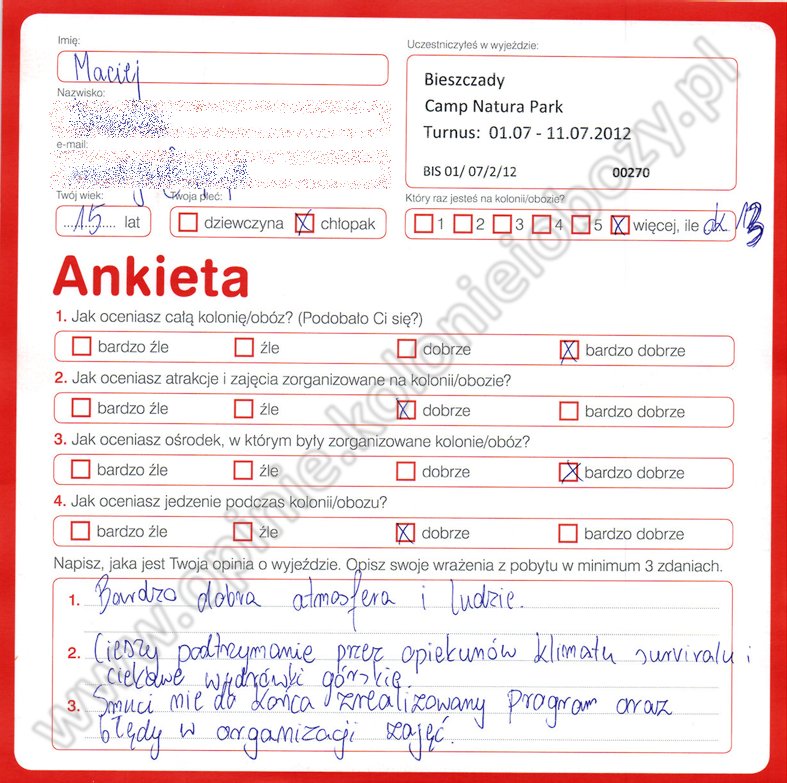 Imię:
Maciej
Uczestniczyłeś w wyjeździe:
Bieszczady
Camp Natura Park
Turnus: 01.07 - 11.07.2012
BIS 01/ 07/2/12 00270
Nazwisko:
e-mail:
Twój wiek:
15 lat
Twoja płeć:
dziewczyna X chłopak
Który raz jesteś na kolonii/obozie?
1 2 3 4 5 X więcej, ile ok 13
Ankieta
1. Jak oceniasz całą kolonię/obóz? (Podobało Ci się?)
bardzo źle źle dobrze X bardzo dobrze
2. Jak oceniasz atrakcje i zajęcia zorganizowane na kolonii/obozie?
bardzo źle źle X dobrze bardzo dobrze
3. Jak oceniasz ośrodek, w którym były zorganizowane kolonie/obóz?
bardzo źle źle dobrze X bardzo dobrze
4. Jak oceniasz jedzenie podczas kolonii/obozu?
bardzo źle źle X dobrze bardzo dobrze
Napisz, jaka jest Twoja opinia o wyjeździe. Opisz swoje wrażenia z pobytu w minimum 3 zdaniach.
1. Bardzo dobra atmosfera i ludzie.
2. Cieszy podtrzymanie przez opiekunów klimatu survivalu i
ciekawe wędrówki górskie.
3. Smuci nie do końca zrealizowany program oraz
błędy w organizacji zajęć.
www.opinie.kolonieiobozy.pl